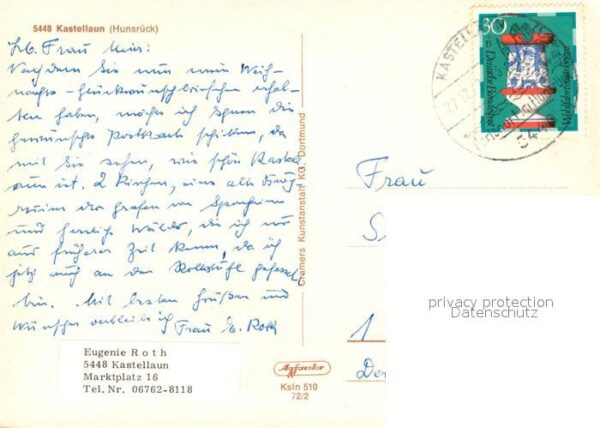 5448 Kastellaun (Hunsrück)
Lb. Frau Meier:
Nachdem Sie nun mein Weih-
nachts-Glückwunschbriefchen erhal-
ten haben, möchte ich Ihnen die
gewünschte Postkarte schicken, da
mit Sie sehen, wie schön Kastell
aun ist. 2 Kirchen, eine alte Burg
ruine der Grafen von Sponheim
und herrliche Wälder, die ich nur
aus früherer Zeit kenne, da ich
jetzt auch an den Rollstuhl gefesselt
bin. Mit besten Grüßen und
Wünschen verbleibe ich Frau E. Roth
Eugenie Roth
5448 Kastellaun
Marktplatz 16
Tel. Nr. 06762-8118
Cramers Kunstanstalt KG, Dortmund
Agfacolor
Ksln 510
72/2
30
Deutsche Bundespost
Wohlfahrtsmarke
KASTELL
544
Frau
S
1
privacy protection
Datenschutz